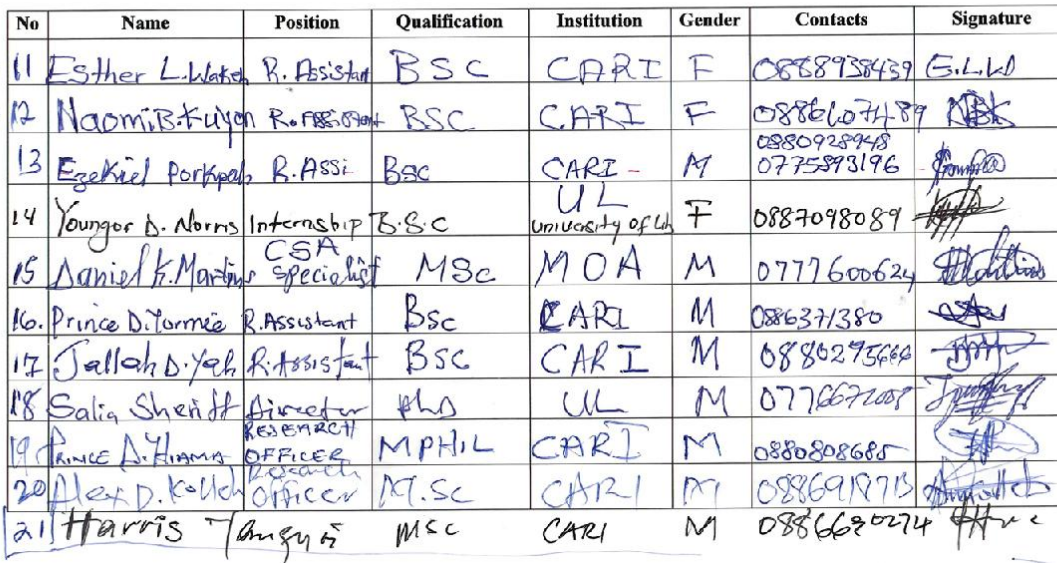 No Name Position Qualification Institution Gender Contacts Signature
11 Esther L. Wateh R. Assistant BSC CARI F 0888938439 E.L.W
12 Naomi B. Kuyon R. Assistant BSC CARI F
13 Ezekiel Porkpah R. Assi Bsc CARI - M 0880928948
0775893196
14 Youngor D. Norris Internship B.S.C UL
University of Lib F 0887098089
15 Daniel K. Martins CSA
Specialist MSc MOA M 0777600624
16. Prince D. Yormie R. Assistant Bsc CARI M 0886371380
17 Jallah D. Yah R. Assistant BSC CARI M
18 Salia Sheriff Director PhD UL M
19 PRINCE D. HIAMA RESEARCH
OFFICER MPHIL CARI M 0880808685
20 Alex D. Research
Officer M.Sc CARI M
21 Harris MSc CARI M